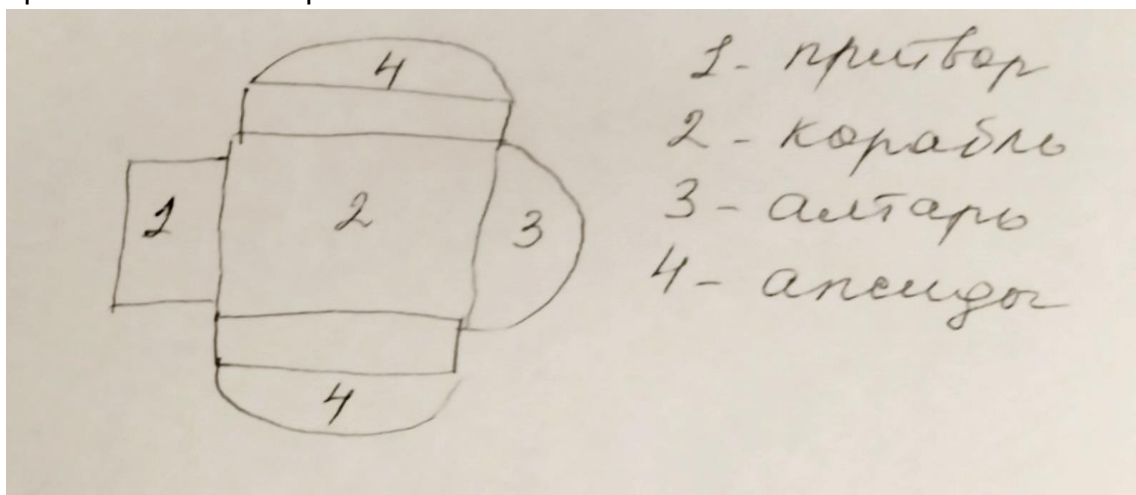 4
1
2
3
4
1 - притвор
2 - корабль
3 - алтарь
4 - апсиды